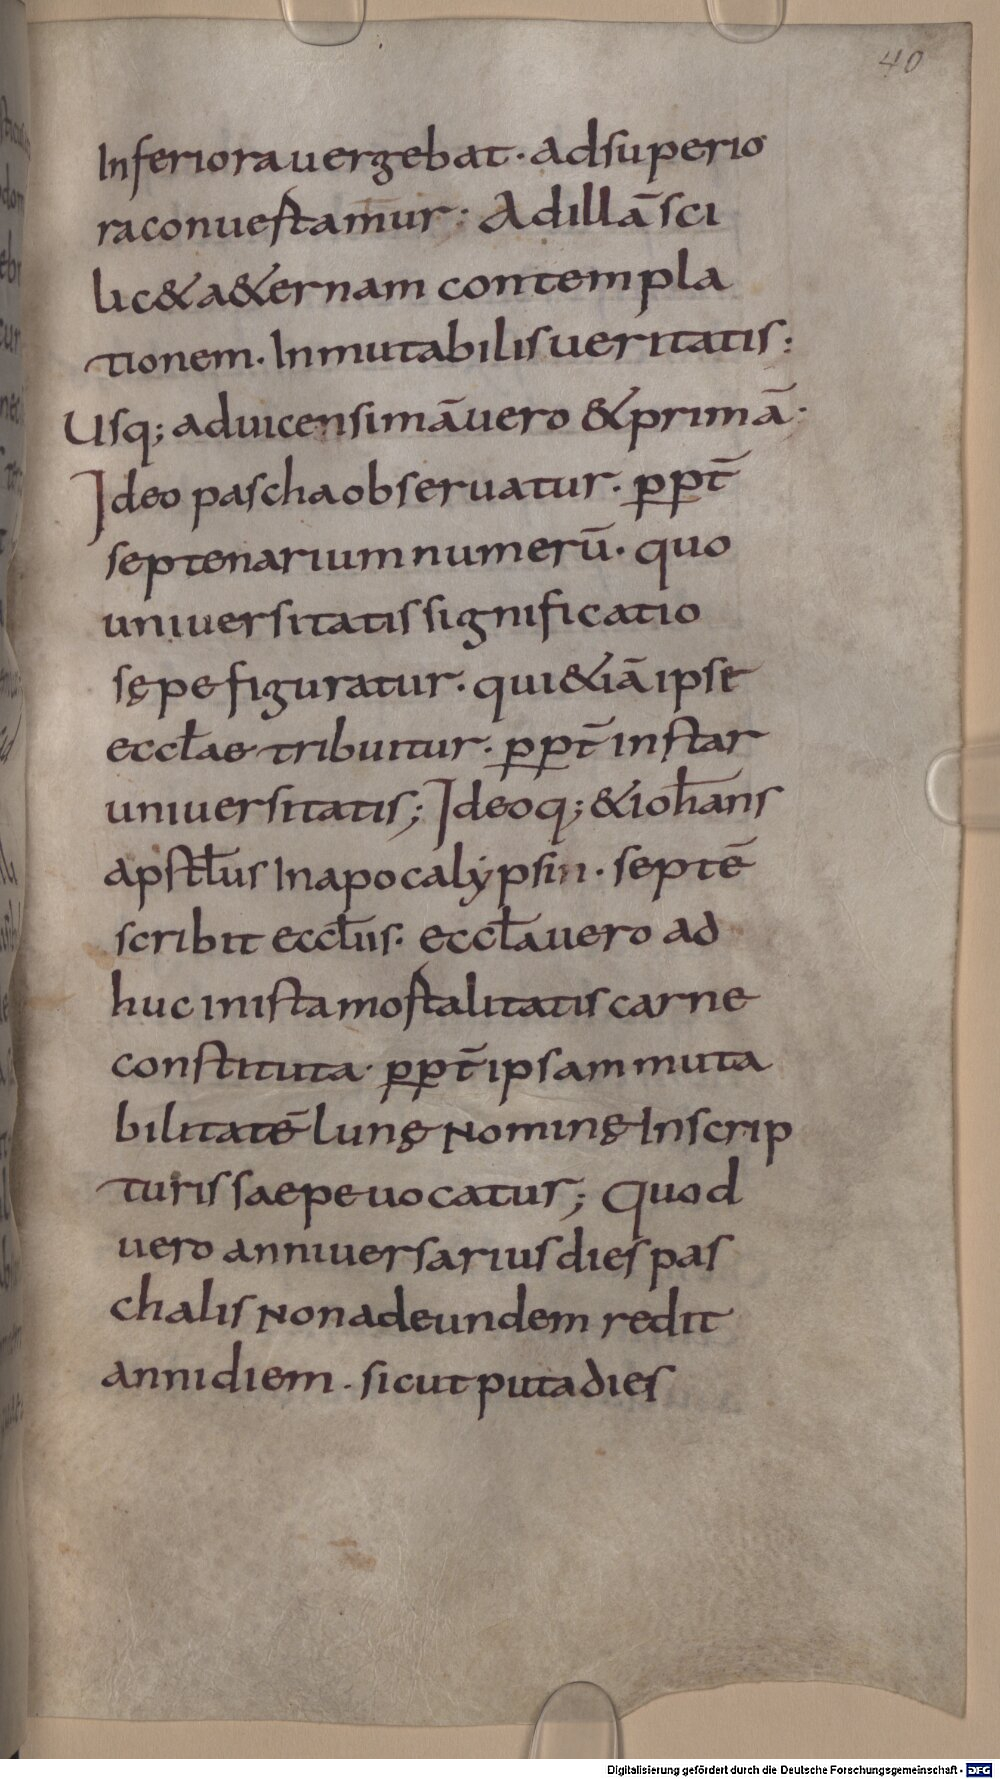 40
Inferiora uergebat · ad superio
ra conuestamur · Ad illā sci
lic& a&ernam contempla
tionem · Inmutabilis ueritatis :
Usq; ad uicensimā uero & primā ·
Ideo pascha obseruatur · ꝓpt̄
septenarium numerū · quo
uniuersitatis significatio
sępe figuratur · qui &iā ipse
eccƚae tribuitur · ꝓpt̄ instar
uniuersitatis ; Ideoq; & ioh̄ans
apsƚus In apocalypsin · septē
scribit eccƚiis · eccƚa uero ad
huc in ista mostalitatis carne
constituta · ꝓpt̄ ipsam muta
bilitatē lunę nominę In scrip
turis saepe uocatur ; Quod
uero anniuersarius dies pas
chalis non ad eundem redit
anni diem · sicut puta dies
Digitalisierung gefördert durch die Deutsche Forschungsgemeinschaft - DFG